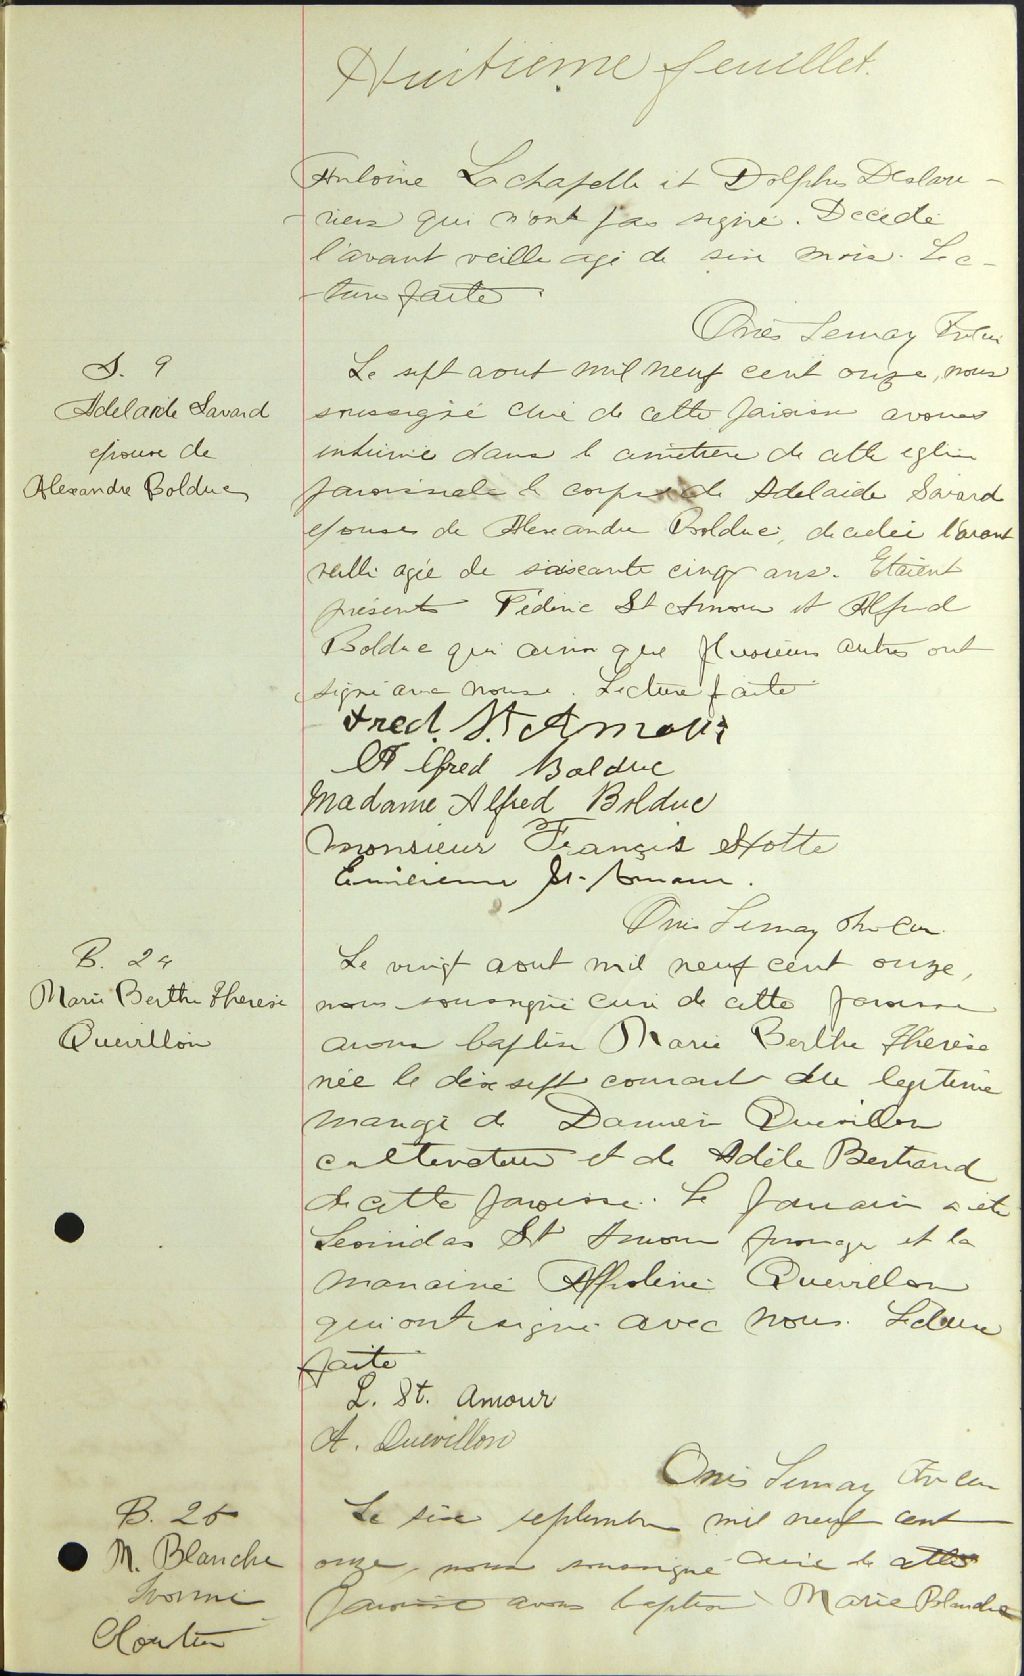 Huitieme feuillet.
Antoine Lachapelle et Dolphis Deslau-
-riers qui n'ont pas signé. Décédé
l'avant veille agé de six mois. Lec-
-ture faite
Onés Lemay Ptre cur
S. 9
Adelaide Savard
epouse de
Alexandre Bolduc
Le sept aout mil neuf cent onze, nous
soussigné curé de cette paroisse avons
inhumé dans le cimetiere de cette eglise
paroissiale le corps de Adelaide Savard
epouse de Alexandre Bolduc, decedée l'avant
veille agée de soixante cinq ans. Etaient
présents Féderic St Amour et Alfred
Bolduc qui ainsi que plusieurs autres ont
signé avec nous. Lecture faite
Fred. St Amour
Alfred Bolduc
Madame Alfred Bolduc
Monsieur François Hotte
Emilienne St-Amour.
Onés Lemay Ptre Cur.
B. 24
Marie Berthe Therese
Quevillon
Le vingt aout mil neuf cent onze,
nous soussigné curé de cette paroisse
avons baptisé Marie Berthe Therese
née le dix sept courant du legitime
mariage de Damien Quevillon
cultivateur et de Adèle Bertrand
de cette paroisse. Le parrain a été
Leonidas St Amour et la
marraine Quevillon
qui ont signé avec nous. Lecture
faite
L. St. Amour
A. Quevillon
Onés Lemay Ptre cur
B. 25
M. Blanche
Ivonne
Cloutier
Le six septembre mil neuf cent
onze, nous soussigné curé de cette
paroisse avons baptisé Marie Blanche